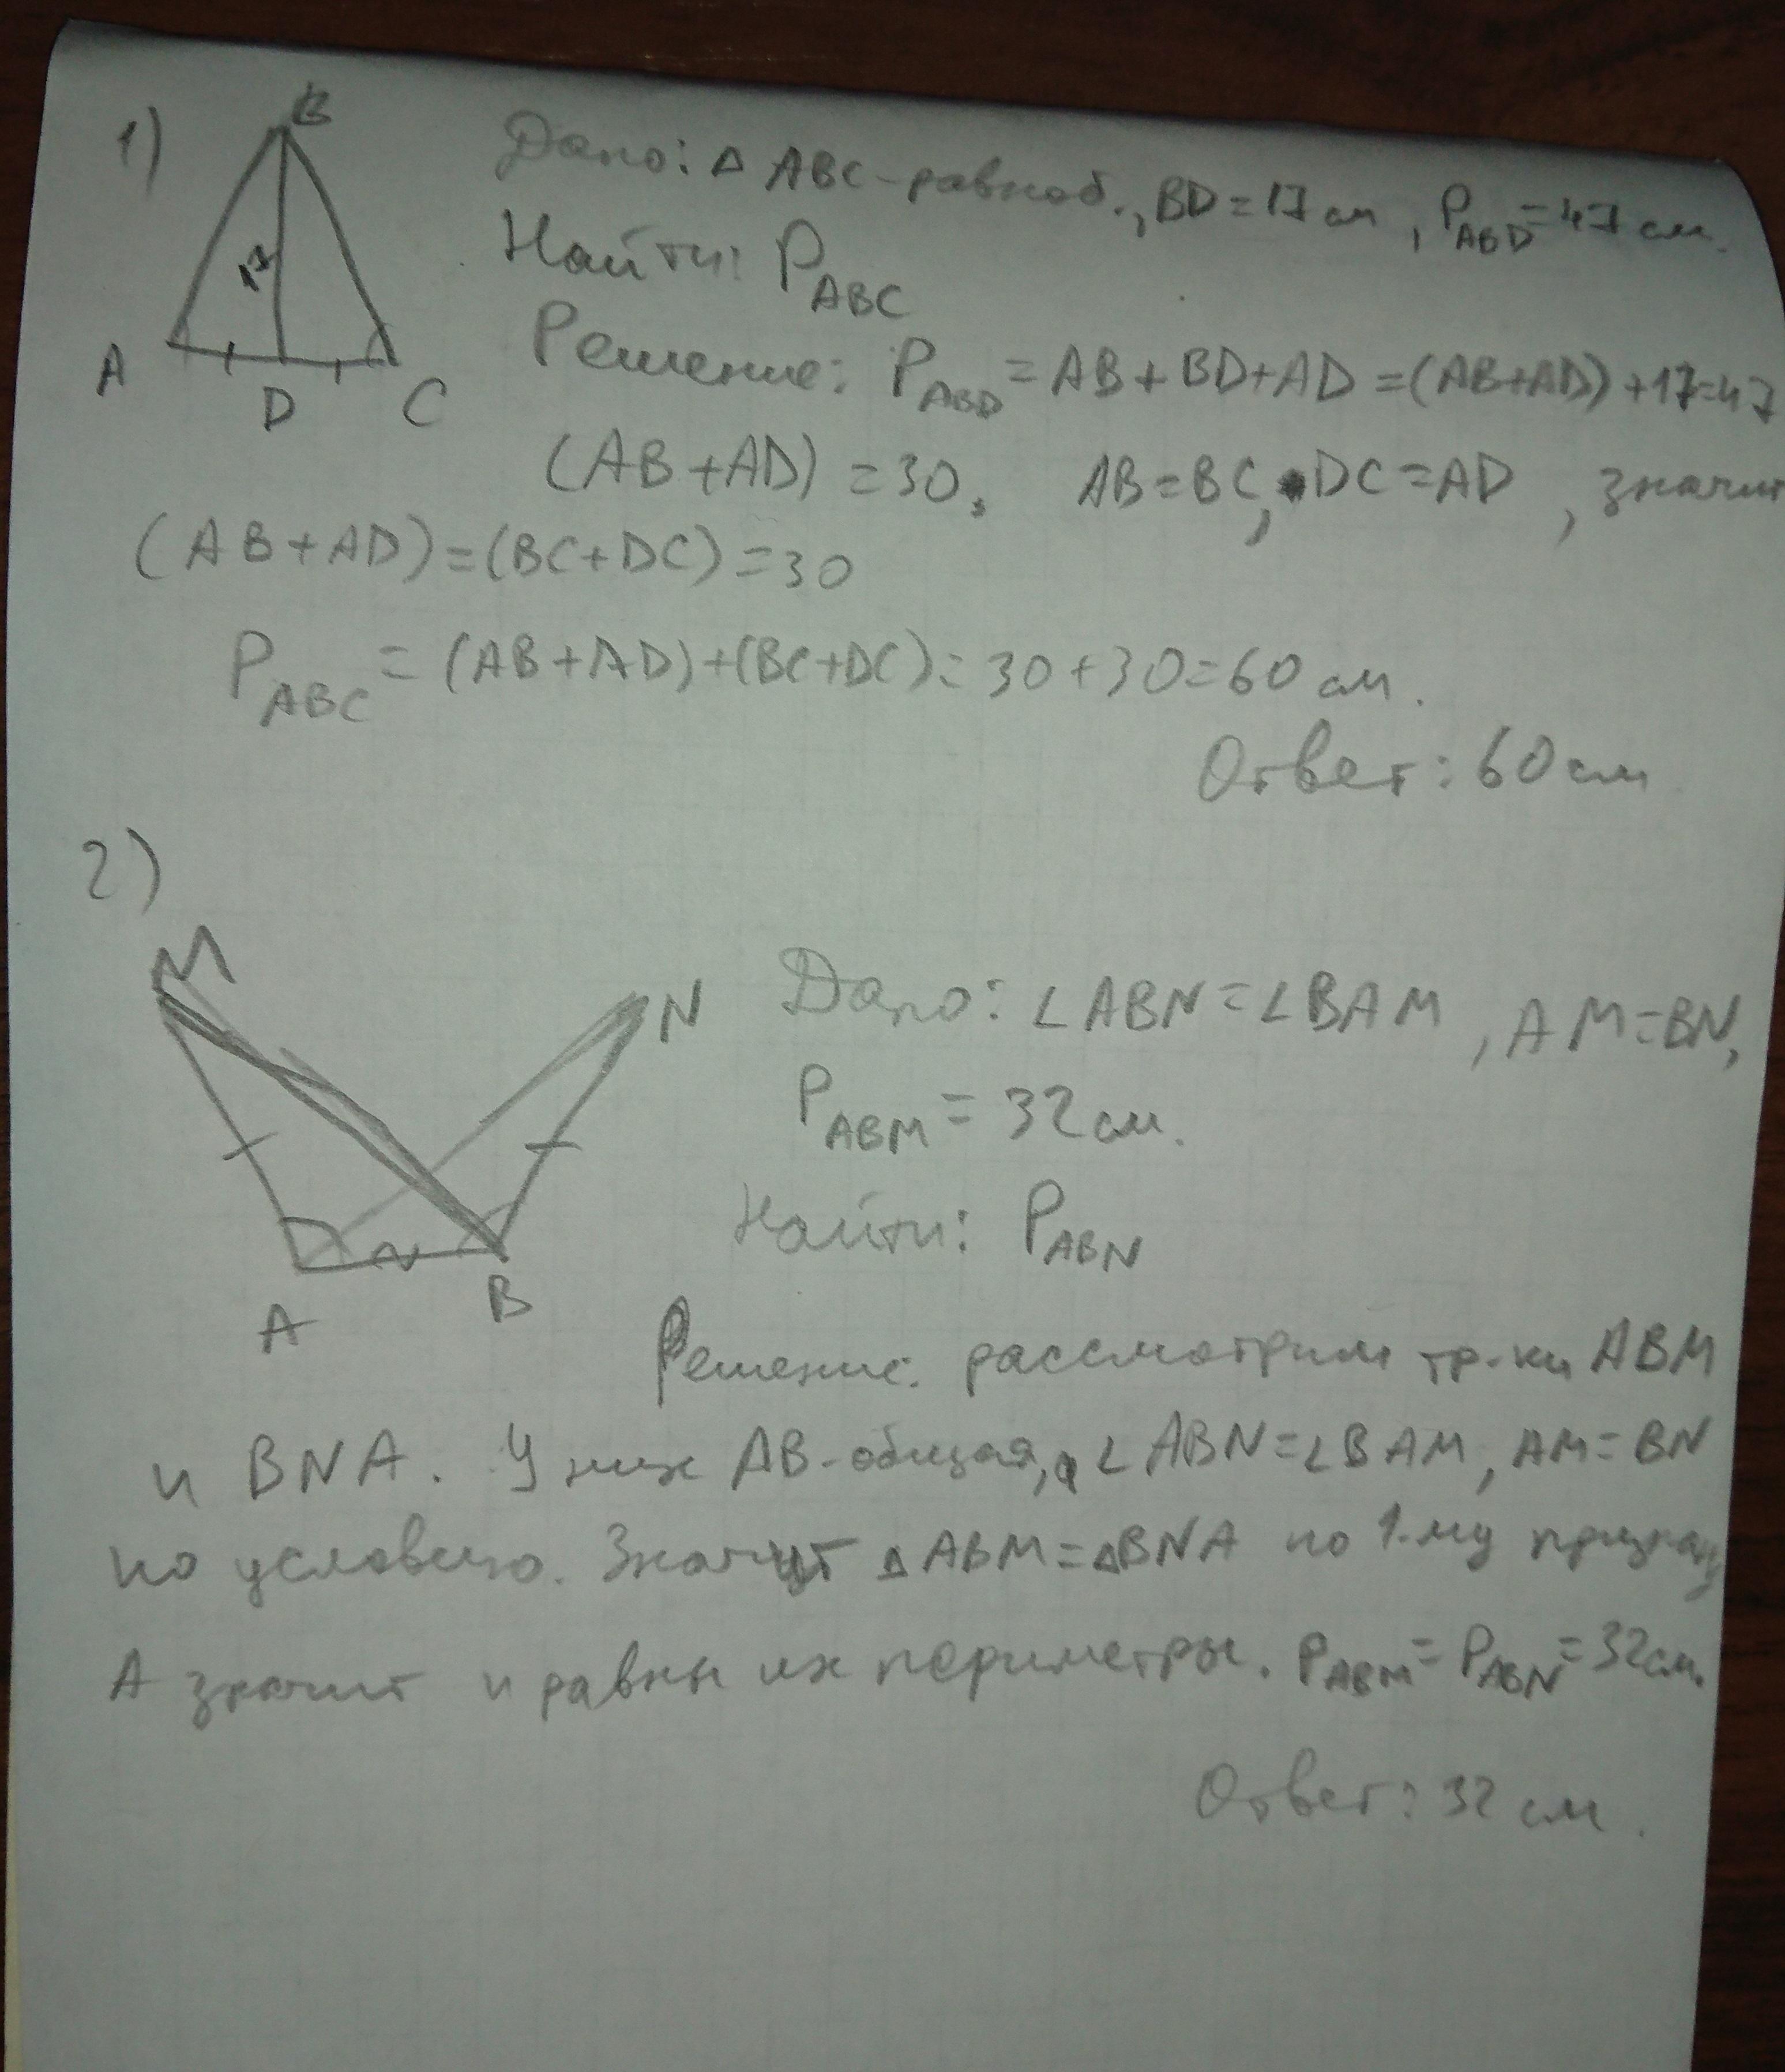 1)
B
17
A
D
C
Дано: △ ABC-равноб., BD=17 см, P_ABD=47 см.
Найти: P_ABC
Решение: P_ABD=AB+BD+AD=(AB+AD)+17=47
(AB+AD)=30, AB=BC, DC=AD, значит
(AB+AD)=(BC+DC)=30
P_ABC=(AB+AD)+(BC+DC)=30+30=60 см.
Ответ: 60 см
2)
M
N
A
B
Дано: ∠ABN=∠BAM, AM=BN,
P_ABM=32 см.
Найти: P_ABN
Решение: рассмотрим тр-ки ABM
и BNA. У них AB-общая, ∠ABN=∠BAM, AM=BN
по условию. Значит △ABM=△BNA по 1-му признаку
А значит и равны их периметры. P_ABM=P_ABN=32 см.
Ответ: 32 см.